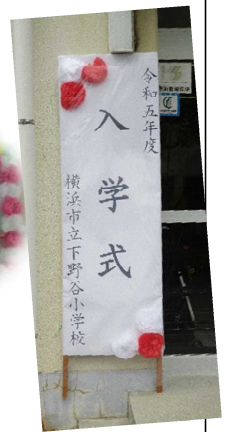 令和五年度
入学式
横浜市立下野谷小学校